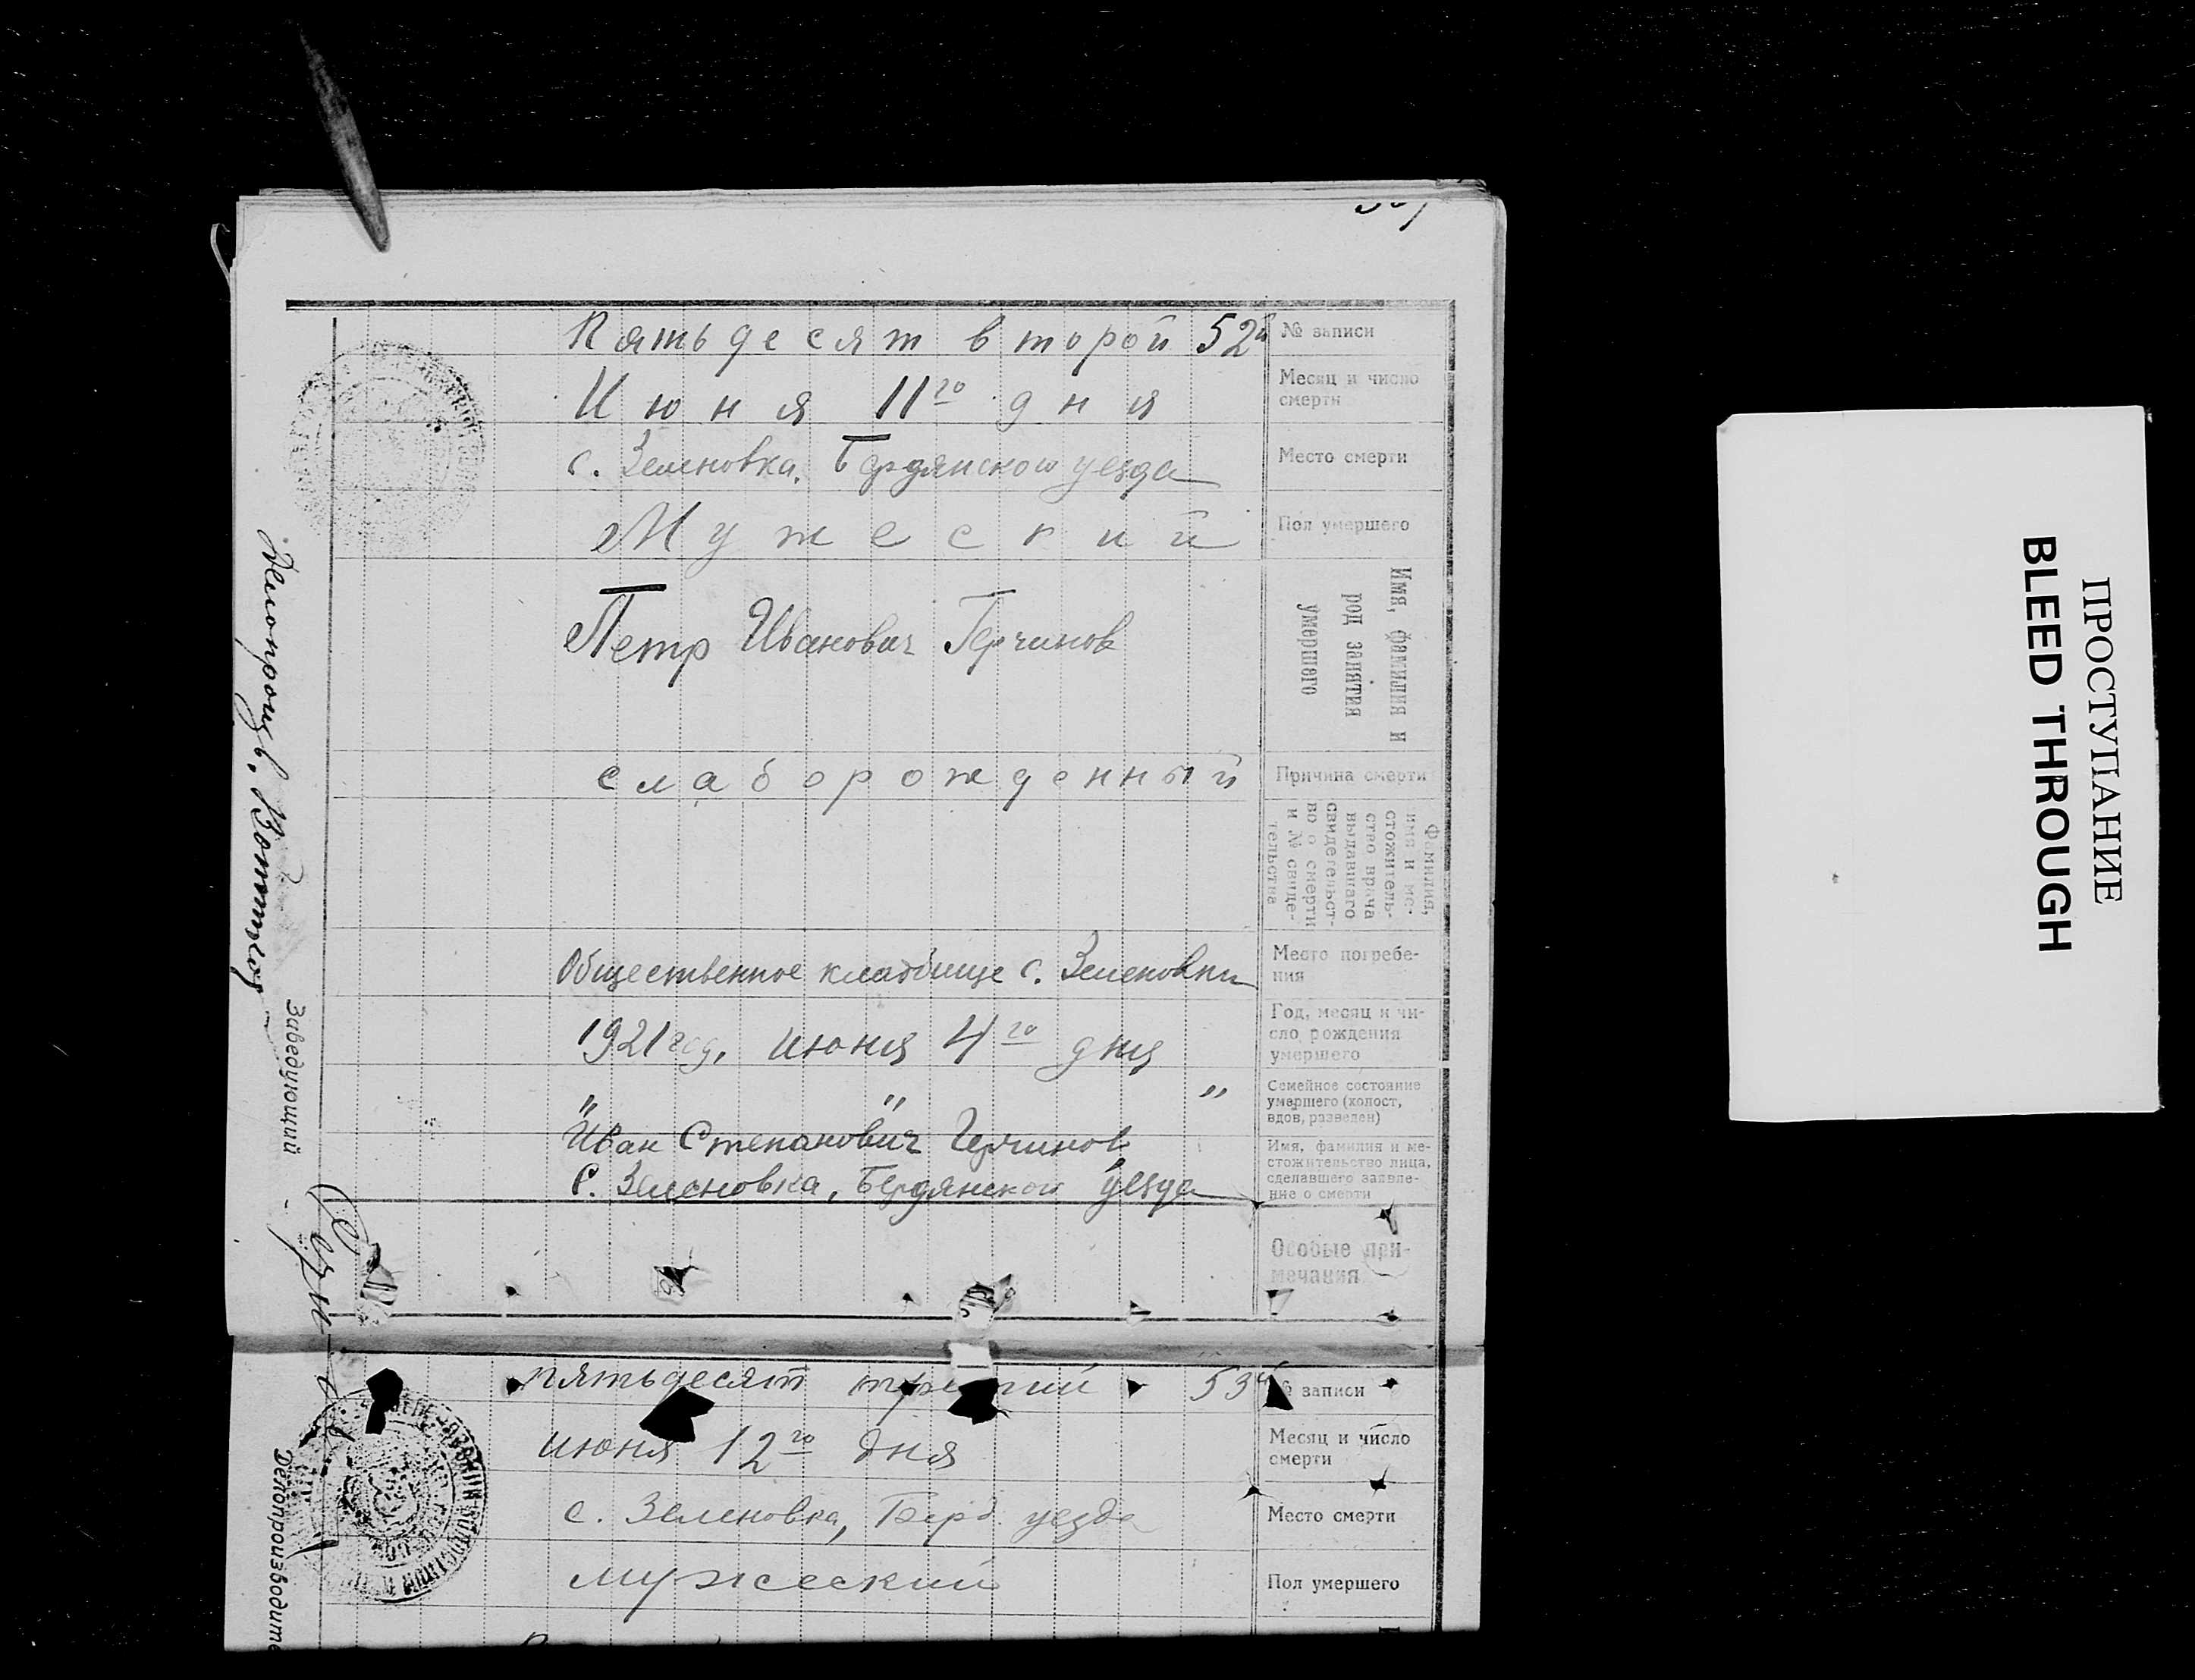 Пятьдесят второй 52й
№ записи
Июня 11го дня
Месяц и число
смерти
с. Зеленовка, Бердянского уезда
Место смерти
Мужеский
Пол умершего
Петр Иванович Герчинов
Имя, фамилия и
род занятия
умершего
слаборожденный
Причина смерти
Фамилия,
имя и ме-
стожитель-
ство врача
выдавшаго
свидетельст-
во о смерти
и № свиде-
тельства
Общественное кладбище с. Зеленовки
Место погребе-
ния
1921 год. июня 4го дня
Год, месяц и чи-
сло рождения
умершего
" " "
Семейное состояние
умершего (холост,
вдов, разведен)
Иван Степанович Герчинов
с. Зеленовка, Бердянского уезда
Имя, фамилия и ме-
стожительство лица,
сделавшего заявле-
ние о смерти
Особые при-
мечания
Делопроизв.
Заведующий
пятьдесят третий 53й
№ записи
июня 12го дня
Месяц и число
смерти
с. Зеленовка, Берд. уезда
Место смерти
мужеский
Пол умершего
Делопроизводите
ПРОСТУПАНИЕ
BLEED THROUGH